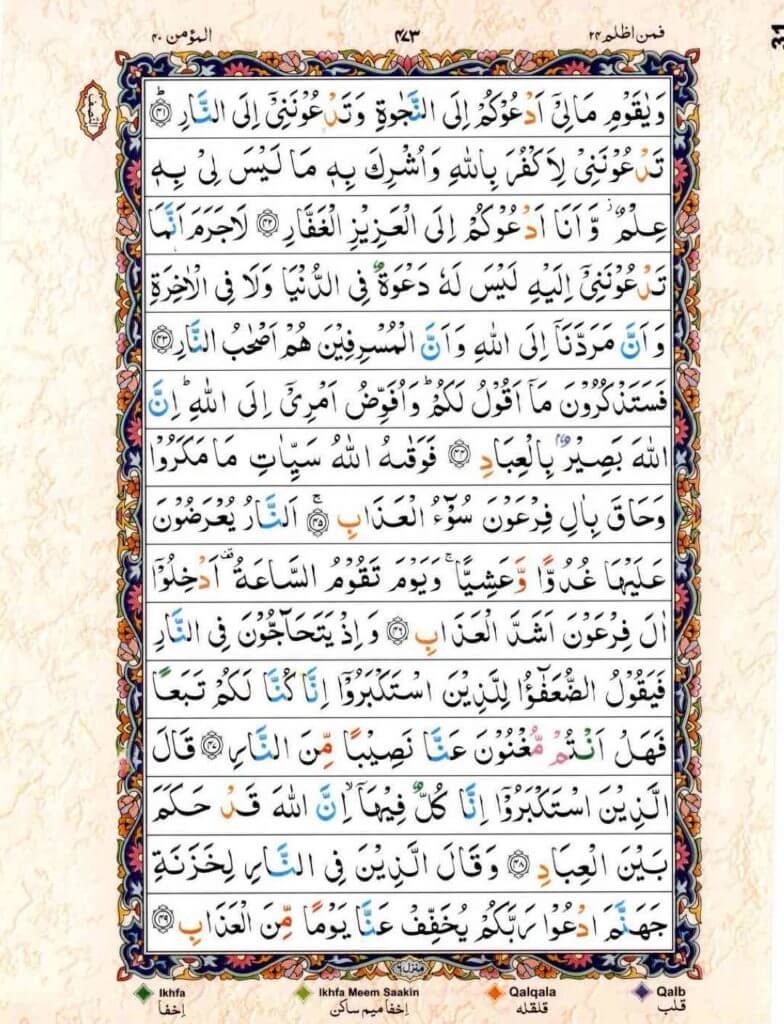 فمن اظلم ۲۴ ۴۷۳ المؤمن ۴۰
31
النصف
وَيٰقَوْمِ مَالِىْٓ اَدْعُوْكُمْ اِلَى النَّجٰوةِ وَتَدْعُوْنَنِىْٓ اِلَى النَّارِ ؕ‏ ﴿۴۱﴾
تَدْعُوْنَنِىْ لِاَكْفُرَ بِاللّٰهِ وَاُشْرِكَ بِهٖ مَا لَيْسَ لِىْ بِهٖ
عِلْمٌ ز وَّاَنَا اَدْعُوْكُمْ اِلَى الْعَزِيْزِ الْغَفَّارِ ﴿۴۲﴾ لَاجَرَمَ اَنَّمَا
تَدْعُوْنَنِىْٓ اِلَيْهِ لَيْسَ لَهٗ دَعْوَةٌ فِى الدُّنْيَا وَلَا فِى الْاٰخِرَةِ
وَاَنَّ مَرَدَّنَاۤ اِلَى اللّٰهِ وَاَنَّ الْمُسْرِفِيْنَ هُمْ اَصْحٰبُ النَّارِ ﴿۴۳﴾
فَسَتَذْكُرُوْنَ مَاۤ اَقُوْلُ لَكُمْ ؕ وَاُفَوِّضُ اَمْرِىْٓ اِلَى اللّٰهِ ؕ اِنَّ
اللّٰهَ بَصِيْرٌۢ بِالْعِبَادِ ﴿۴۴﴾ فَوَقٰىهُ اللّٰهُ سَيِّاٰتِ مَا مَكَرُوْا
وَحَاقَ بِاٰلِ فِرْعَوْنَ سُوْٓءُ الْعَذَابِ ۚ ﴿۴۵﴾ اَلنَّارُ يُعْرَضُوْنَ
عَلَيْهَا غُدُوًّا وَّعَشِيًّا ۚ وَيَوْمَ تَقُوْمُ السَّاعَةُ ۟ اَدْخِلُوْۤا
اٰلَ فِرْعَوْنَ اَشَدَّ الْعَذَابِ ﴿۴۶﴾ وَاِذْ يَتَحَآجُّوْنَ فِى النَّارِ
فَيَقُوْلُ الضُّعَفٰٓؤُا لِلَّذِيْنَ اسْتَكْبَرُوْۤا اِنَّا كُنَّا لَكُمْ تَبَعًا
فَهَلْ اَنْتُمْ مُّغْنُوْنَ عَنَّا نَصِيْبًا مِّنَ النَّارِ ﴿۴۷﴾ قَالَ
الَّذِيْنَ اسْتَكْبَرُوْۤا اِنَّا كُلٌّ فِيْهَاۤ ۙ اِنَّ اللّٰهَ قَدْ حَكَمَ
بَيْنَ الْعِبَادِ ﴿۴۸﴾ وَقَالَ الَّذِيْنَ فِى النَّارِ لِخَزَنَةِ
جَهَنَّمَ ادْعُوْا رَبَّكُمْ يُخَفِّفْ عَنَّا يَوْمًا مِّنَ الْعَذَابِ ﴿۴۹﴾
منزل ۶
Ikhfa Ikhfa Meem Saakin Qalqala Qalb
اِخفا اِخفا میم ساکن قلقله قلب